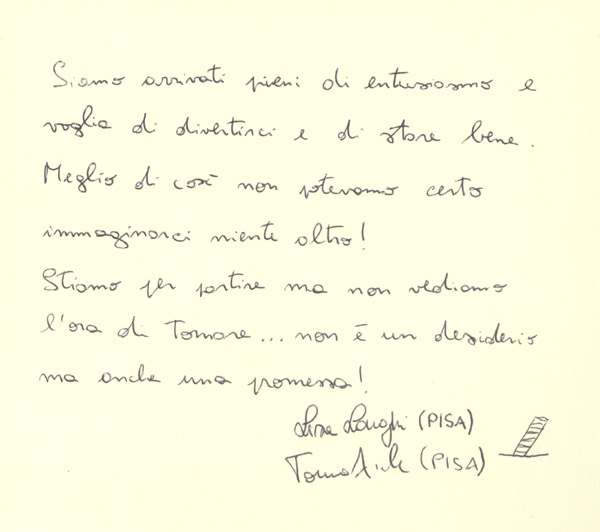 Siamo arrivati pieni di entusiasmo e
voglia di divertirci e di stare bene.
Meglio di così non potevamo certo
immaginarci niente altro!
Stiamo per partire ma non vediamo
l'ora di Tornare... non è un desiderio
ma anche una promessa!
(PISA)
(PISA)